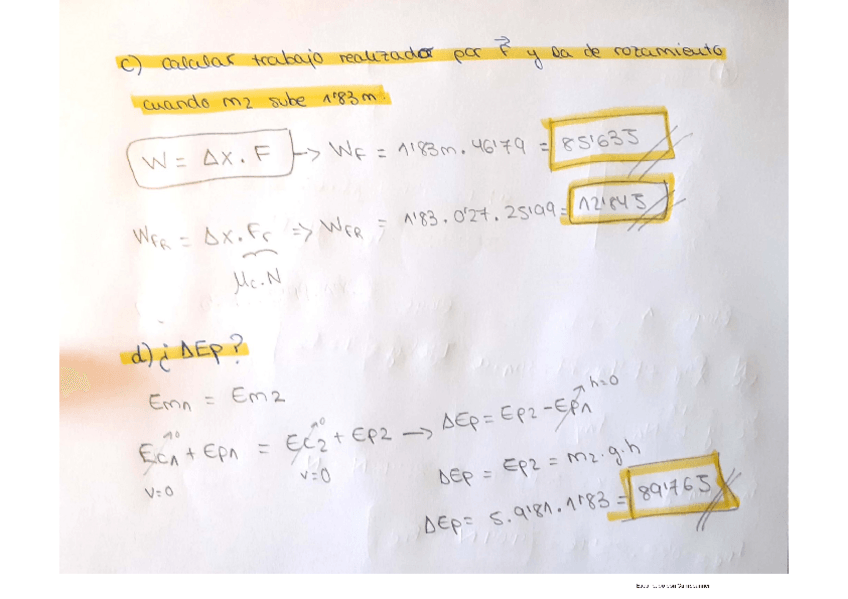 c) calcular trabajo realizador por F⃗ y la de rozamiento
cuando m2 sube 1'83m.
W = Δx . F → WF = 1'83m . 46'79 = 85'63J
WFR = Δx . Fr => WFR = 1'83 . 0'27 . 25'99 = 12'84J
μc . N
d) ¿ΔEp?
Em1 = Em2
h=0
Ec1 + Ep1 = Ec2 + Ep2 → ΔEp = Ep2 - Ep1
v=0 v=0
ΔEp = Ep2 = m2 . g . h
ΔEp = 5 . 9'81 . 1'83 = 89'76J